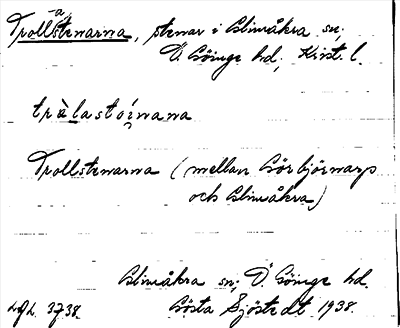 Trollstenarna, stenar i Glimåkra sn;
Ö. Göinge hd, Krist. l.
tràlastoínana
Trollstenarna (mellan Görbjörnarp
och Glimåkra)
Glimåkra sn; Ö. Göinge hd.
Gösta Sjöstedt 1938.